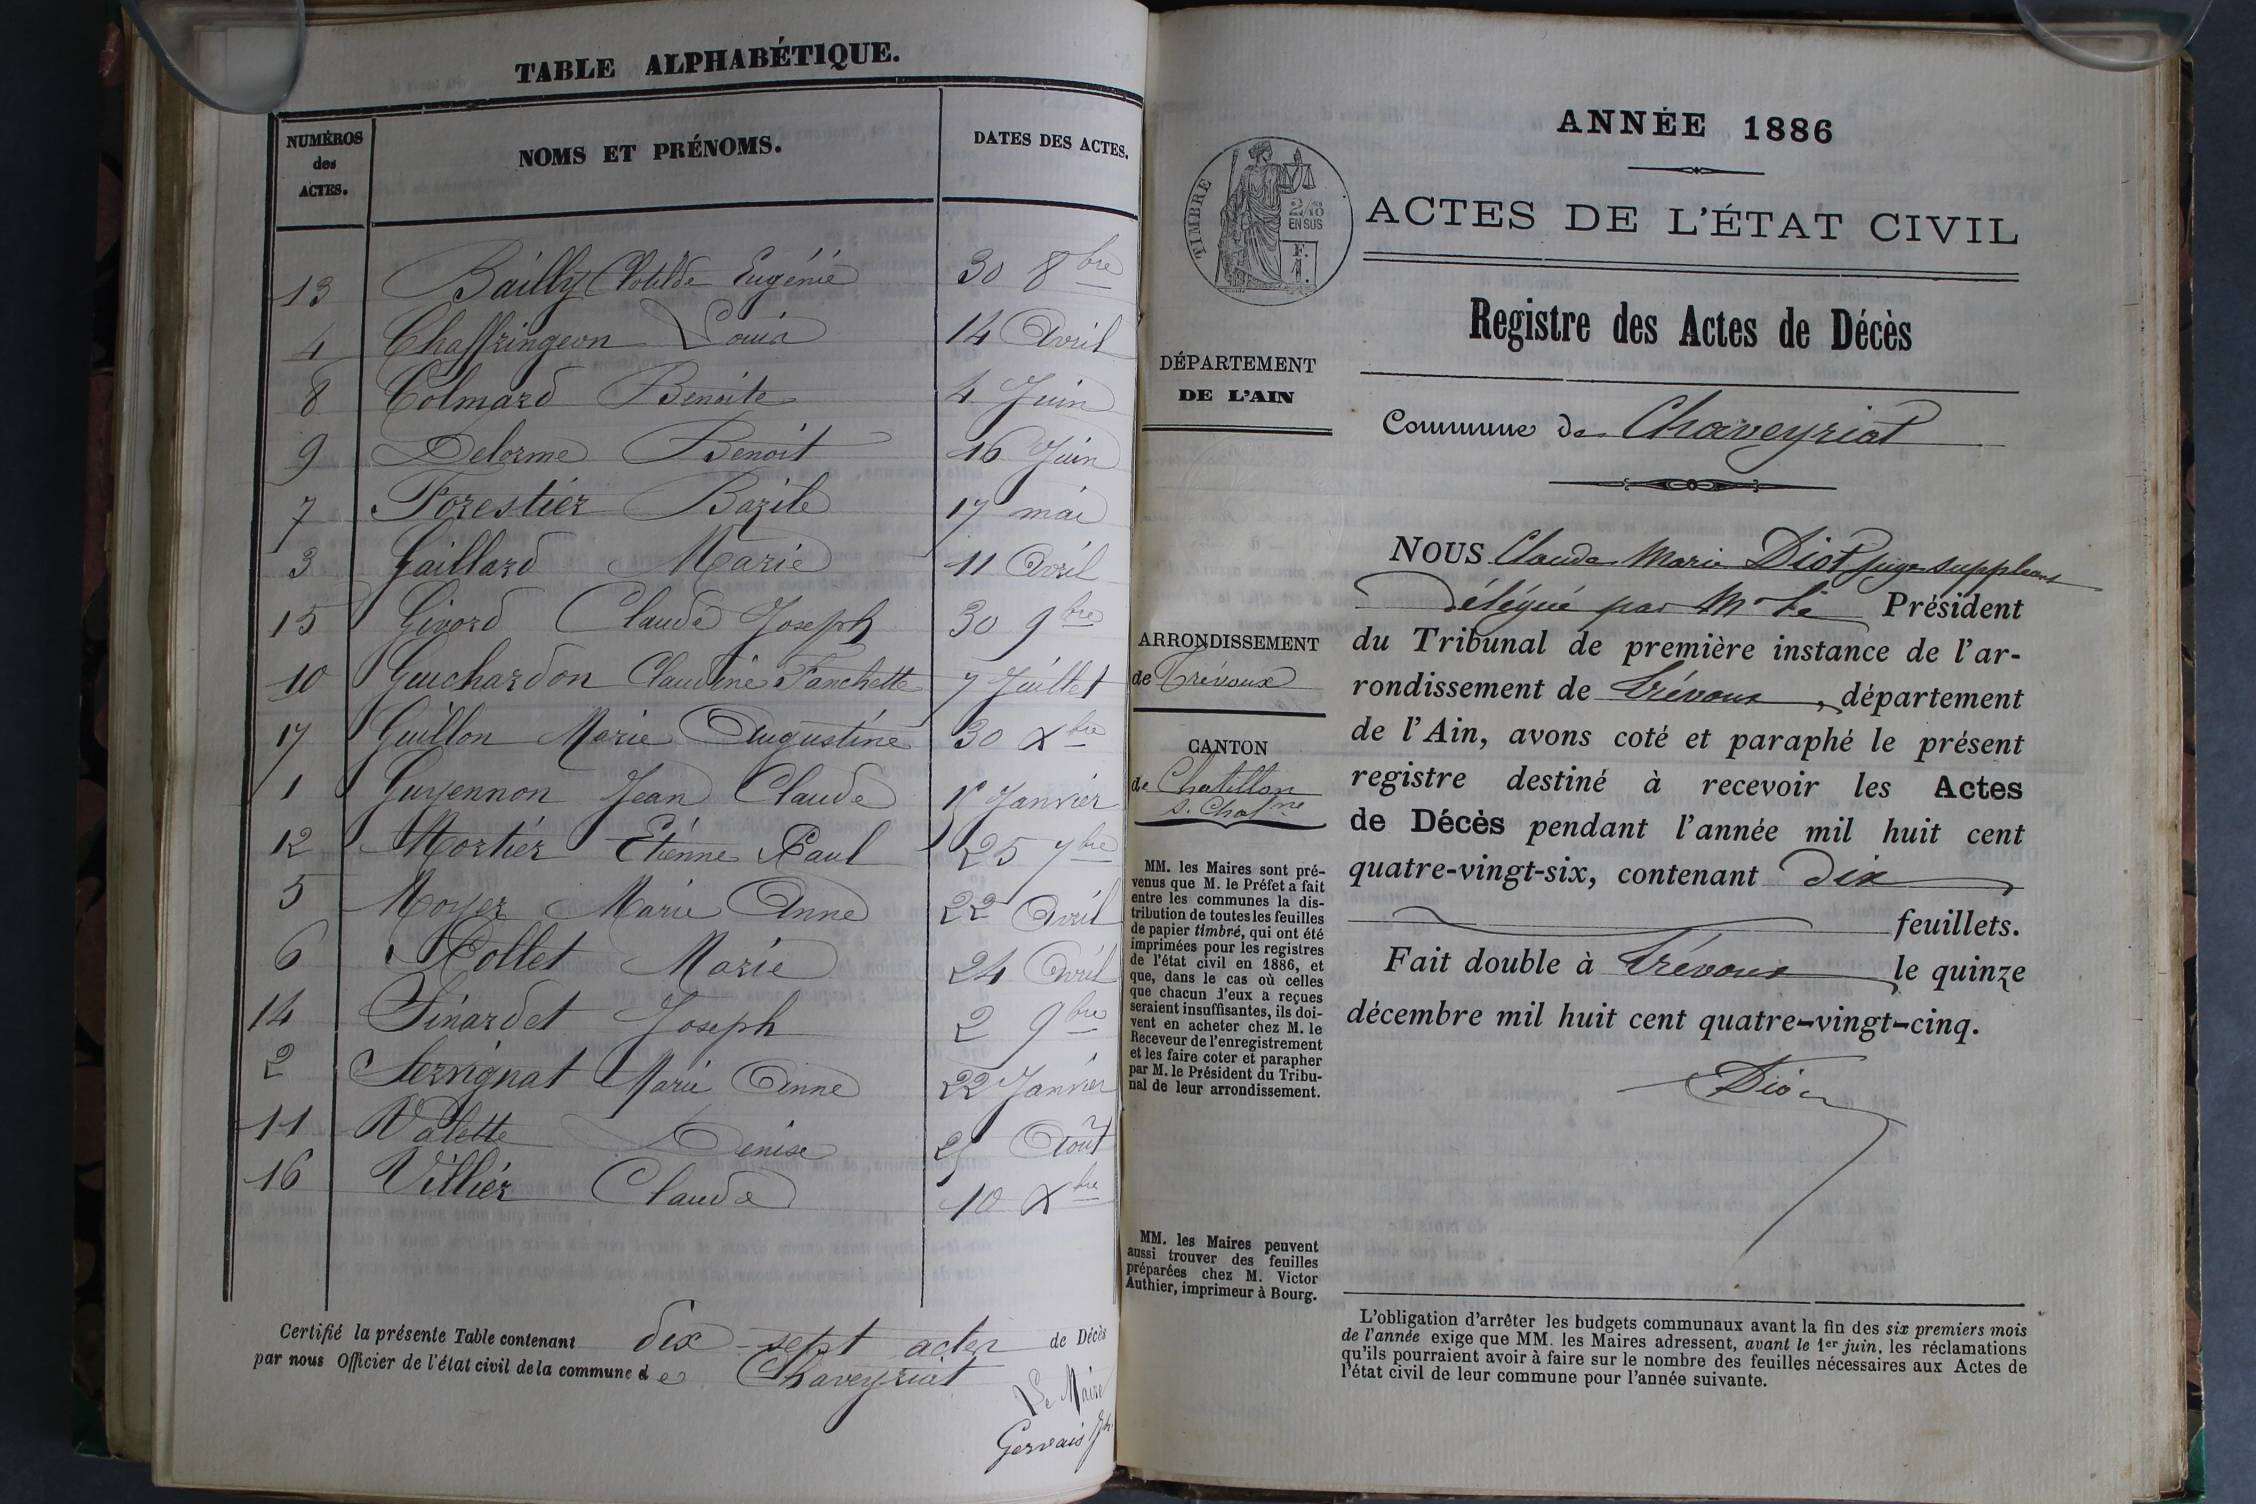 TABLE ALPHABÉTIQUE.
NUMÉROS des ACTES.
NOMS ET PRÉNOMS.
DATES DES ACTES.
13 Bailly Clotilde Eugénie 30 8bre
4 Chaffringeon Louis 14 Avril
8 Colmard Benoite 4 Juin
9 Delorme Benoit 16 Juin
7 Forestier Bazile 17 mai
3 Gaillard Marie 11 Avril
15 Givord Claude Joseph 30 9bre
10 Guichardon Claudine Fanchette 7 Juillet
17 Guillon Marie Augustine 30 Xbre
1 Guyennon Jean Claude Janvier
12 Mortier Etienne Paul 25 7bre
5 Moyer Marie Anne 22 Avril
6 Pollet Marie 24 Avril
14 Sinardet Joseph 2 9bre
2 Servignat Marie Anne 22 Janvier
11 Valette Denise Août
16 Villier Claude 10 Xbre
Certifié la présente Table contenant dix-sept actes de Décès
par nous Officier de l'état civil de la commune de Chaveyriat
Le Maire
Gervais
ANNÉE 1886
TIMBRE
2/10 EN SUS
F. 1.
ACTES DE L'ÉTAT CIVIL
Registre des Actes de Décès
Commune de Chaveyriat
DÉPARTEMENT
DE L'AIN
ARRONDISSEMENT
de Trévoux
CANTON
de Chatillon
s. Chalne
MM. les Maires sont pré-
venus que M. le Préfet a fait
entre les communes la dis-
tribution de toutes les feuilles
de papier timbré, qui ont été
imprimées pour les registres
de l'état civil en 1886, et
que, dans le cas où celles
que chacun d'eux a reçues
seraient insuffisantes, ils doi-
vent en acheter chez M. le
Receveur de l'enregistrement
et les faire coter et parapher
par M. le Président du Tribu-
nal de leur arrondissement.
MM. les Maires peuvent
aussi trouver des feuilles
préparées chez M. Victor
Authier, imprimeur à Bourg.
NOUS Claude Marie Diot Juge suppléant
Délégué par Mr le Président
du Tribunal de première instance de l'ar-
rondissement de Trévoux, département
de l'Ain, avons coté et paraphé le présent
registre destiné à recevoir les Actes
de Décès pendant l'année mil huit cent
quatre-vingt-six, contenant dix
feuillets.
Fait double à Trévoux le quinze
décembre mil huit cent quatre-vingt-cinq.
Diot
L'obligation d'arrêter les budgets communaux avant la fin des six premiers mois
de l'année exige que MM. les Maires adressent, avant le 1er juin, les réclamations
qu'ils pourraient avoir à faire sur le nombre des feuilles nécessaires aux Actes de
l'état civil de leur commune pour l'année suivante.